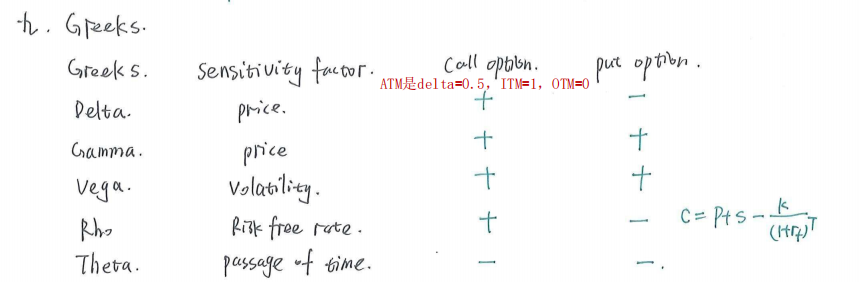 九. Greeks.
Greeks. Sensitivity factor. Call option. put option.
ATM是delta=0.5，ITM=1，OTM=0
Delta. price. + −
Gamma. price + +
Vega. Volatility. + +
Rho Risk free rate. + − C = P + S − K/(1+rf)^T
Theta. passage of time. − −.